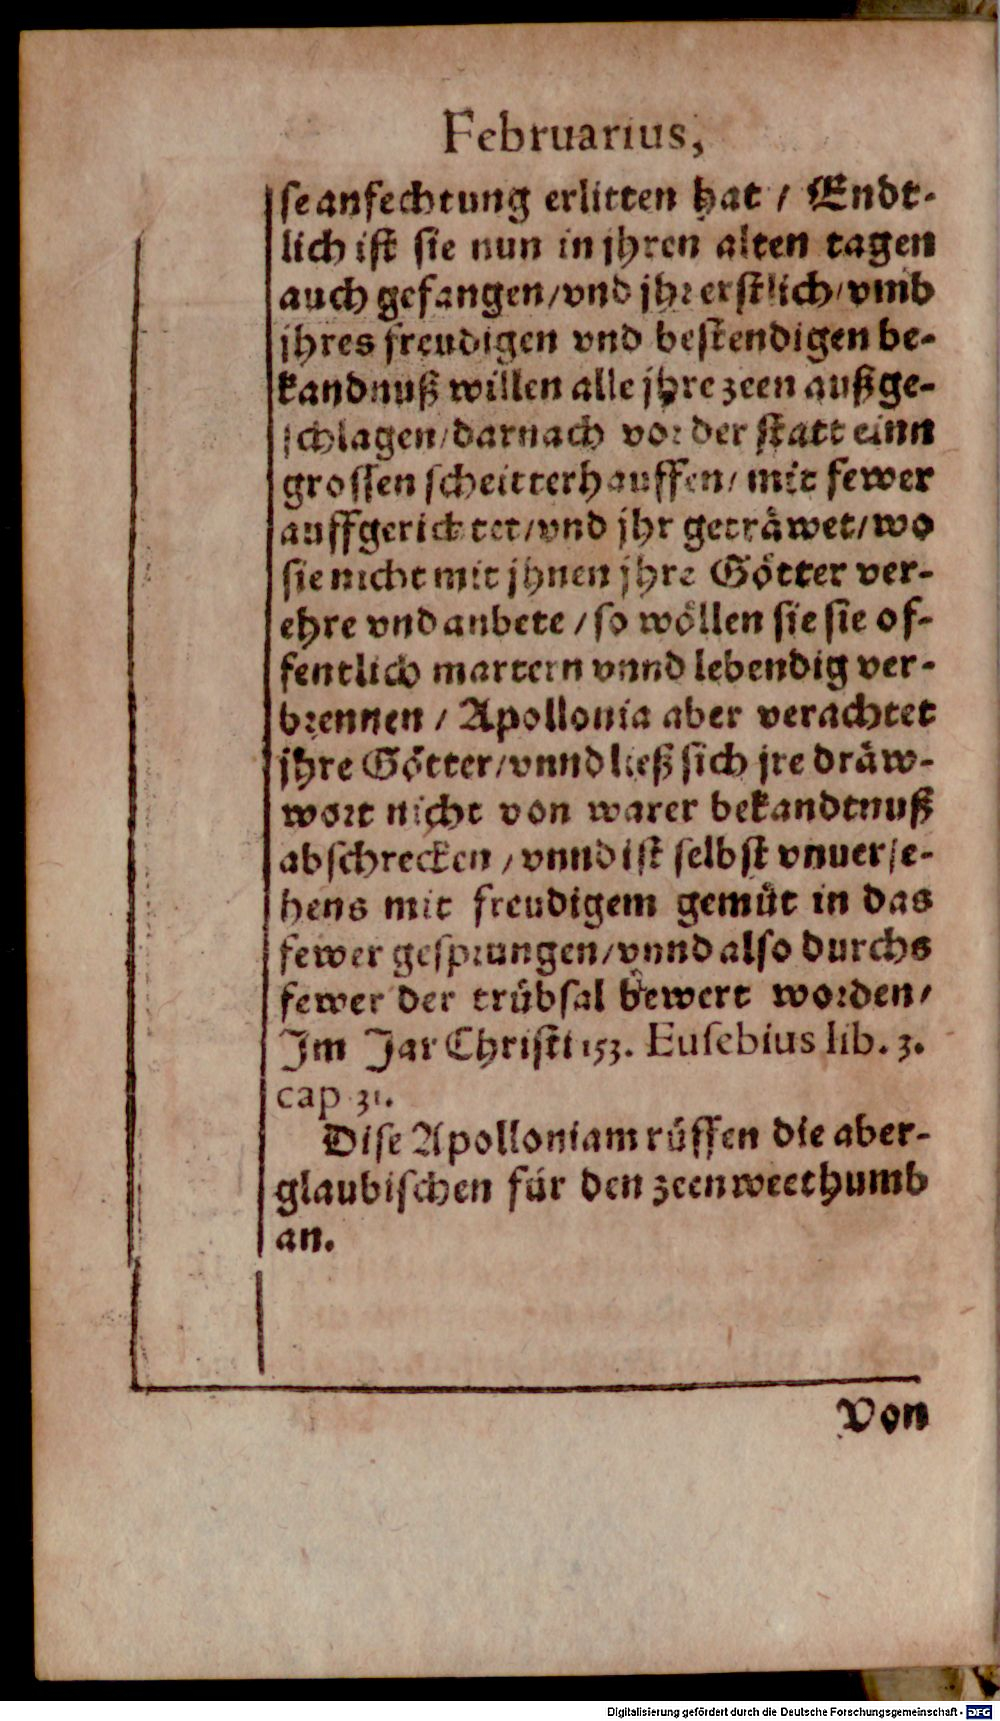 Februarius,
se anfechtung erlitten hat / Endt-
lich ist sie nun in jhren alten tagen
auch gefangen/vnd jhr erstlich/vmb
jhres freudigen vnd bestendigen be-
kandnuß willen alle jhre zeen außge-
schlagen/darnach vor der statt einn
grossen scheitterhauffen/ mit fewer
auffgerichtet/vnd jhr geträwet/wo
sie nicht mit jhnen jhre Götter ver-
ehre vnd anbete / so wöllen sie sie of-
fentlich martern vnnd lebendig ver-
brennen / Apollonia aber verachtet
jhre Götter/vnnd ließ sich jre dräw-
wort nicht von warer bekandtnuß
abschrecken / vnnd ist selbst vnuerse-
hens mit freudigem gemüt in das
fewer gesprungen/vnnd also durchs
fewer der trübsal bewert worden/
Im Jar Christi 153. Eusebius lib. 3.
cap 31.
Dise Apolloniam rüffen die aber-
glaubischen für den zeenweethumb
an.
Von
Digitalisierung gefördert durch die Deutsche Forschungsgemeinschaft - DFG